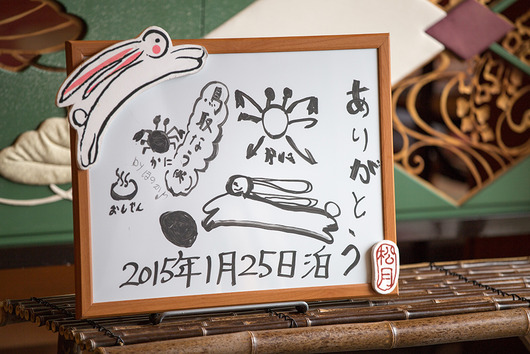 ありがとう
かに
かに
おんせん
2015年1月25日泊
松月